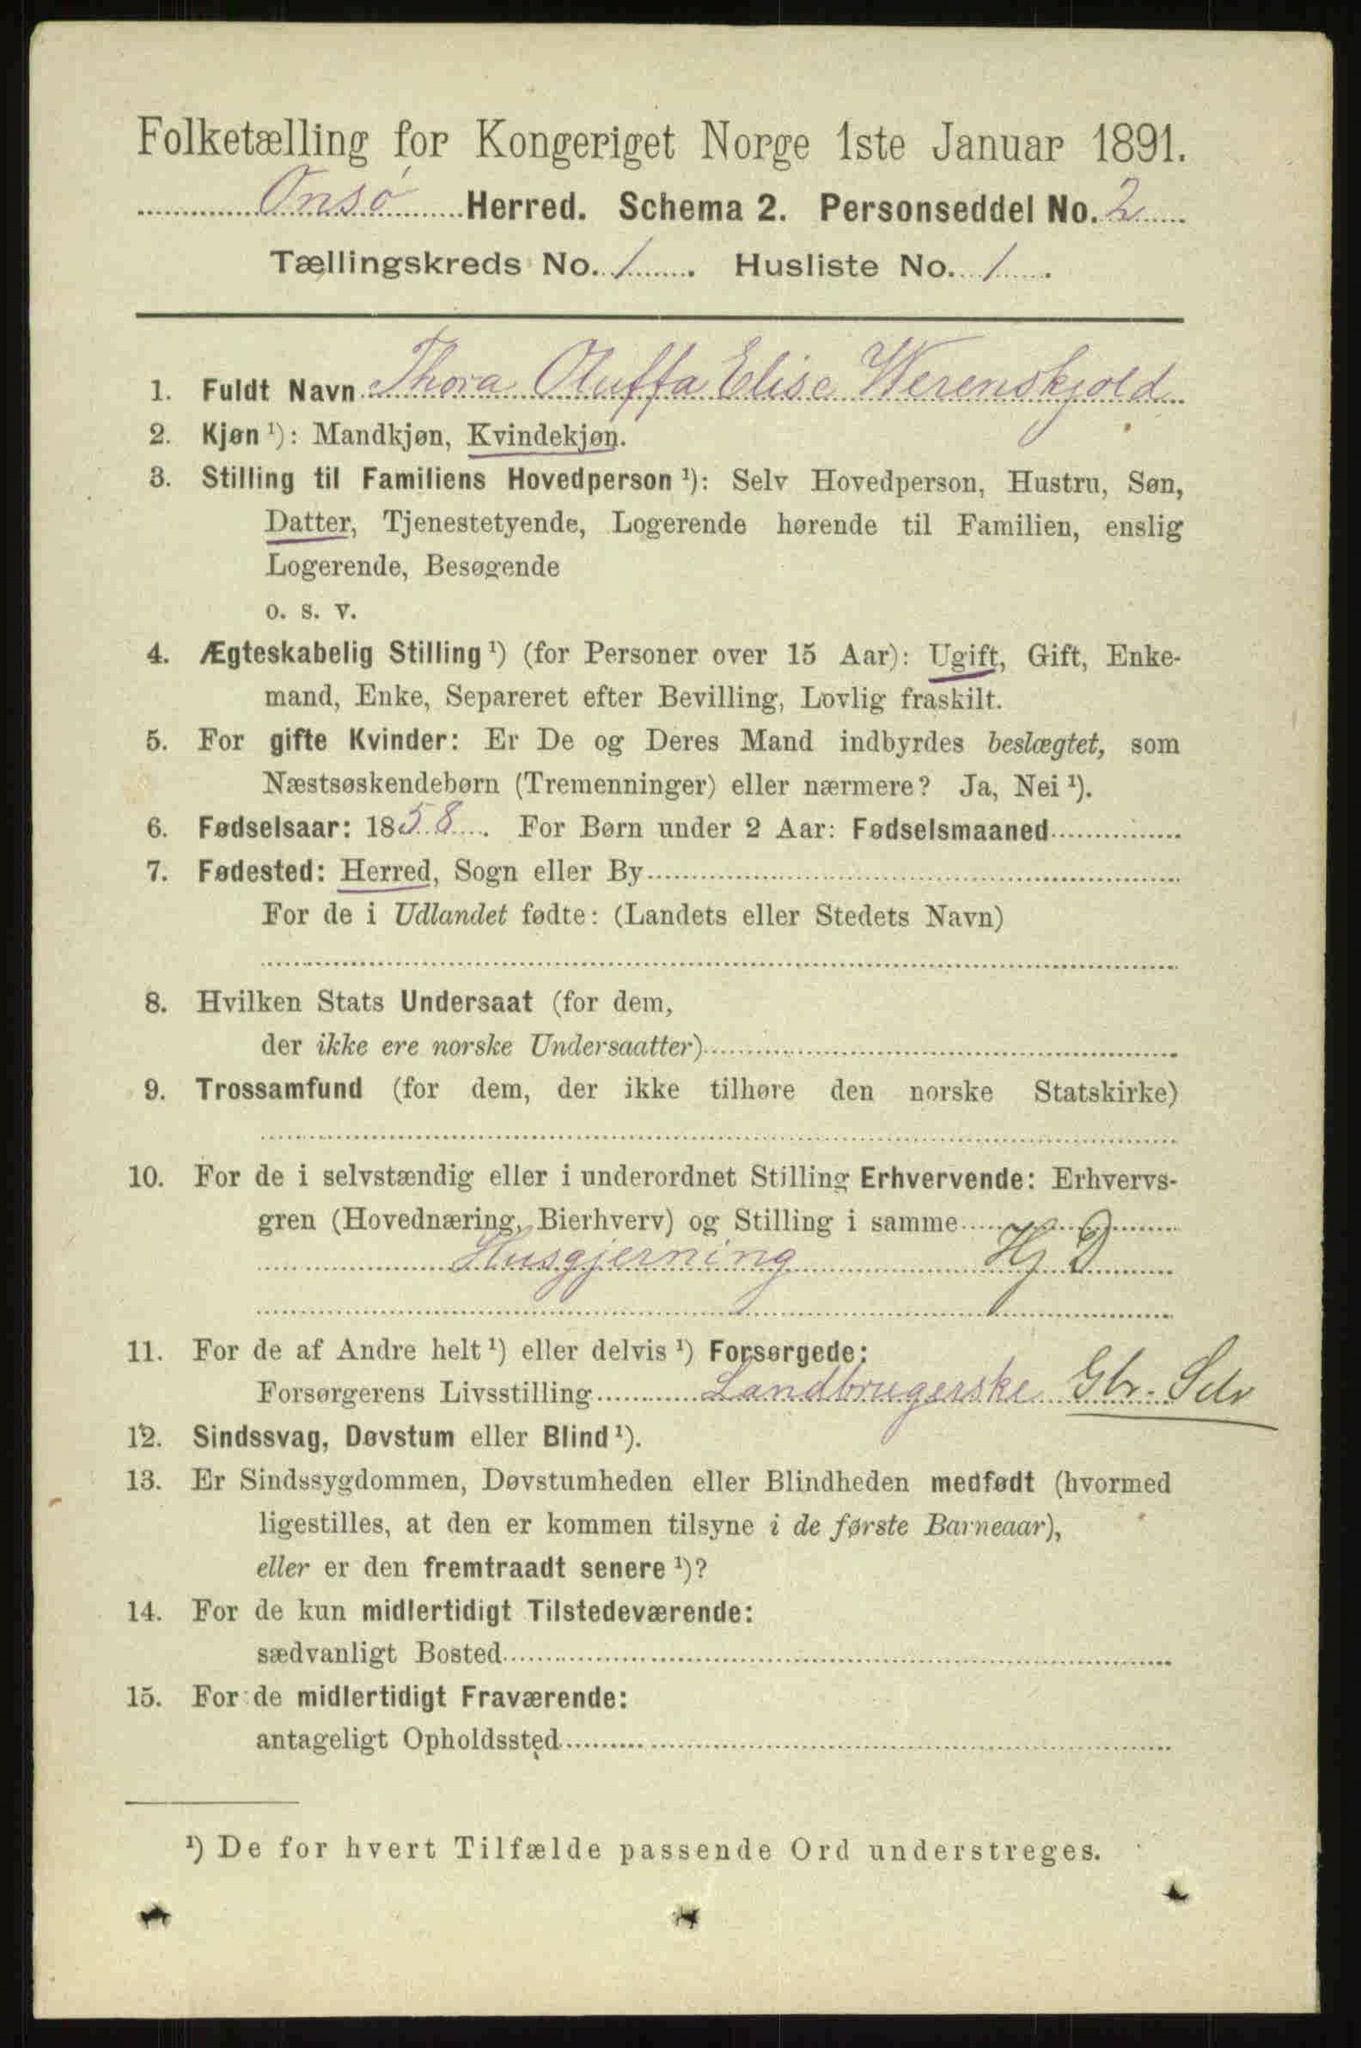 Folketælling for Kongeriget Norge 1ste Januar 1891.
Onsø Herred. Schema 2. Personseddel No. 2
Tællingskreds No. 1. Husliste No. 1.
1. Fuldt Navn Thora Oluffa Elise Werenskjold
2. Kjøn ¹): Mandkjøn, Kvindekjøn.
3. Stilling til Familiens Hovedperson ¹): Selv Hovedperson, Hustru, Søn,
Datter, Tjenestetyende, Logerende hørende til Familien, enslig
Logerende, Besøgende
o. s. v.
4. Ægteskabelig Stilling ¹) (for Personer over 15 Aar): Ugift, Gift, Enke-
mand, Enke, Separeret efter Bevilling, Lovlig fraskilt.
5. For gifte Kvinder: Er De og Deres Mand indbyrdes beslægtet, som
Næstsøskendebørn (Tremenninger) eller nærmere? Ja, Nei ¹).
6. Fødselsaar: 1858. For Børn under 2 Aar: Fødselsmaaned
7. Fødested: Herred, Sogn eller By
For de i Udlandet fødte: (Landets eller Stedets Navn)
8. Hvilken Stats Undersaat (for dem,
der ikke ere norske Undersaatter)
9. Trossamfund (for dem, der ikke tilhøre den norske Statskirke)
10. For de i selvstændig eller i underordnet Stilling Erhvervende: Erhvervs-
gren (Hovednæring, Bierhverv) og Stilling i samme
Husgjerning Hj D
11. For de af Andre helt ¹) eller delvis ¹) Forsørgede:
Forsørgerens Livsstilling Landbrugerske Gbr. Selv
12. Sindssvag, Døvstum eller Blind ¹).
13. Er Sindssygdommen, Døvstumheden eller Blindheden medfødt (hvormed
ligestilles, at den er kommen tilsyne i de første Barneaar),
eller er den fremtraadt senere ¹)?
14. For de kun midlertidigt Tilstedeværende:
sædvanligt Bosted
15. For de midlertidigt Fraværende:
antageligt Opholdssted
¹) De for hvert Tilfælde passende Ord understreges.